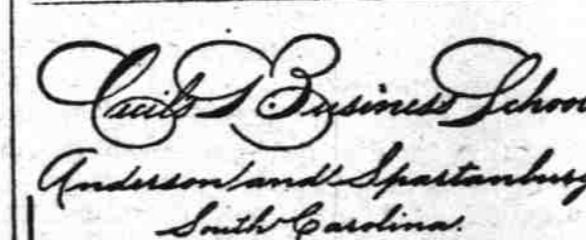 Cecil's Business School
Anderson and Spartanburg
South Carolina.